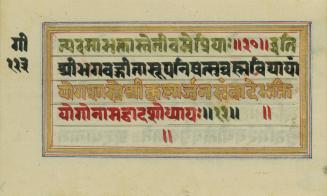 गी
११३
त्परमाभक्तास्तेतीवमेप्रियाः॥२०॥इति
श्रीभगवद्गीतासूपनिषत्सुब्रह्मविद्यायां
योगशास्त्रेश्रीकृष्णार्जुनसंवादेभक्ति
योगोनामद्वादशोध्यायः॥१२॥
॥ ॥